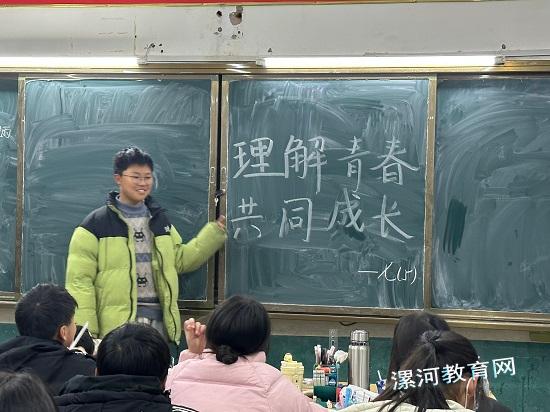 理解青春
共同成长
漯河教育网